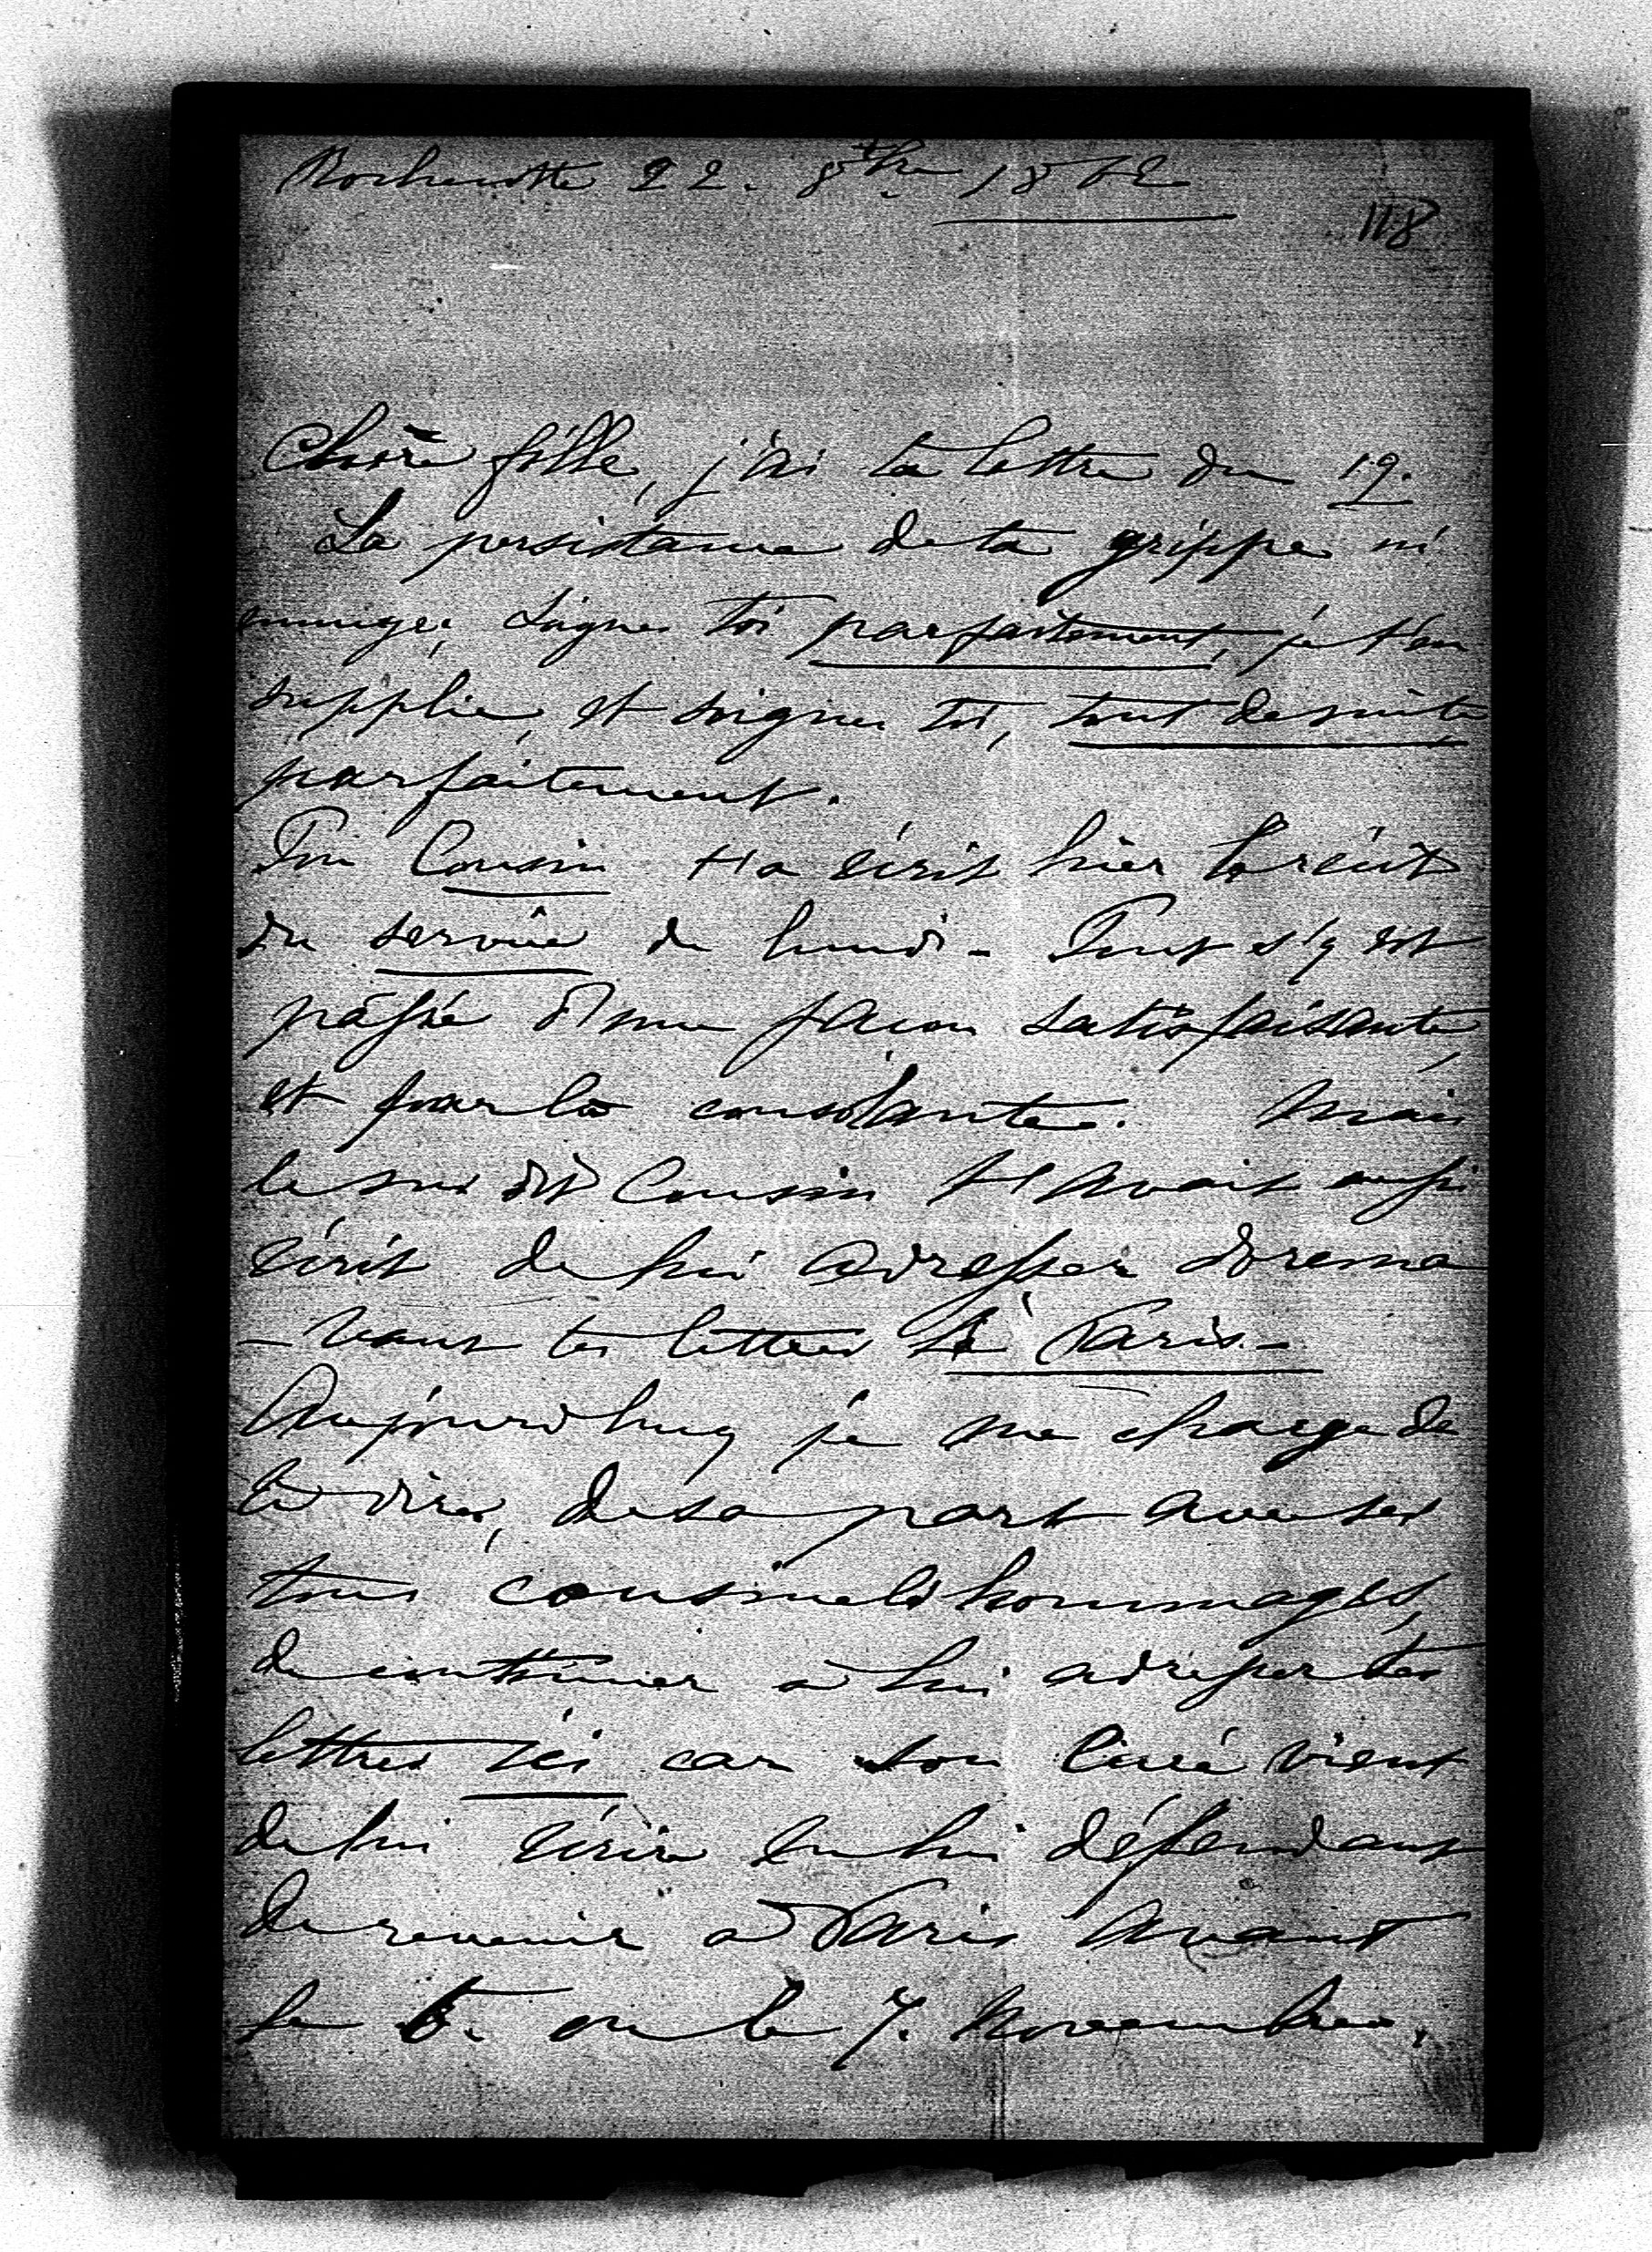 Rochecotte 22. 8bre 18
118
Chère fille, j'ai ta lettre du 19.
La persistance de ta grippe m'
ennuye; soignes toi parfaitement, je t'en
supplie, et soignes toi, tout de suite
parfaitement.
Ton Cousin t'a écrit hier le récit
du service de lundi - Tout s'y est
passé d'une façon satisfaisante,
et par là consolante. Mais
le sus dit Cousin t'avait aussi
écrit de lui adresser dorena
-vant tes lettres à Paris -
Aujourdhuy je me charge de
te dire, de sa part avec ses
tous cousinels hommages,
de continuer à lui adresser tes
lettres ici car son Curé vient
de lui écrire en lui défendant
de revenir à Paris avant
le 6. ou le 7. Novembre.